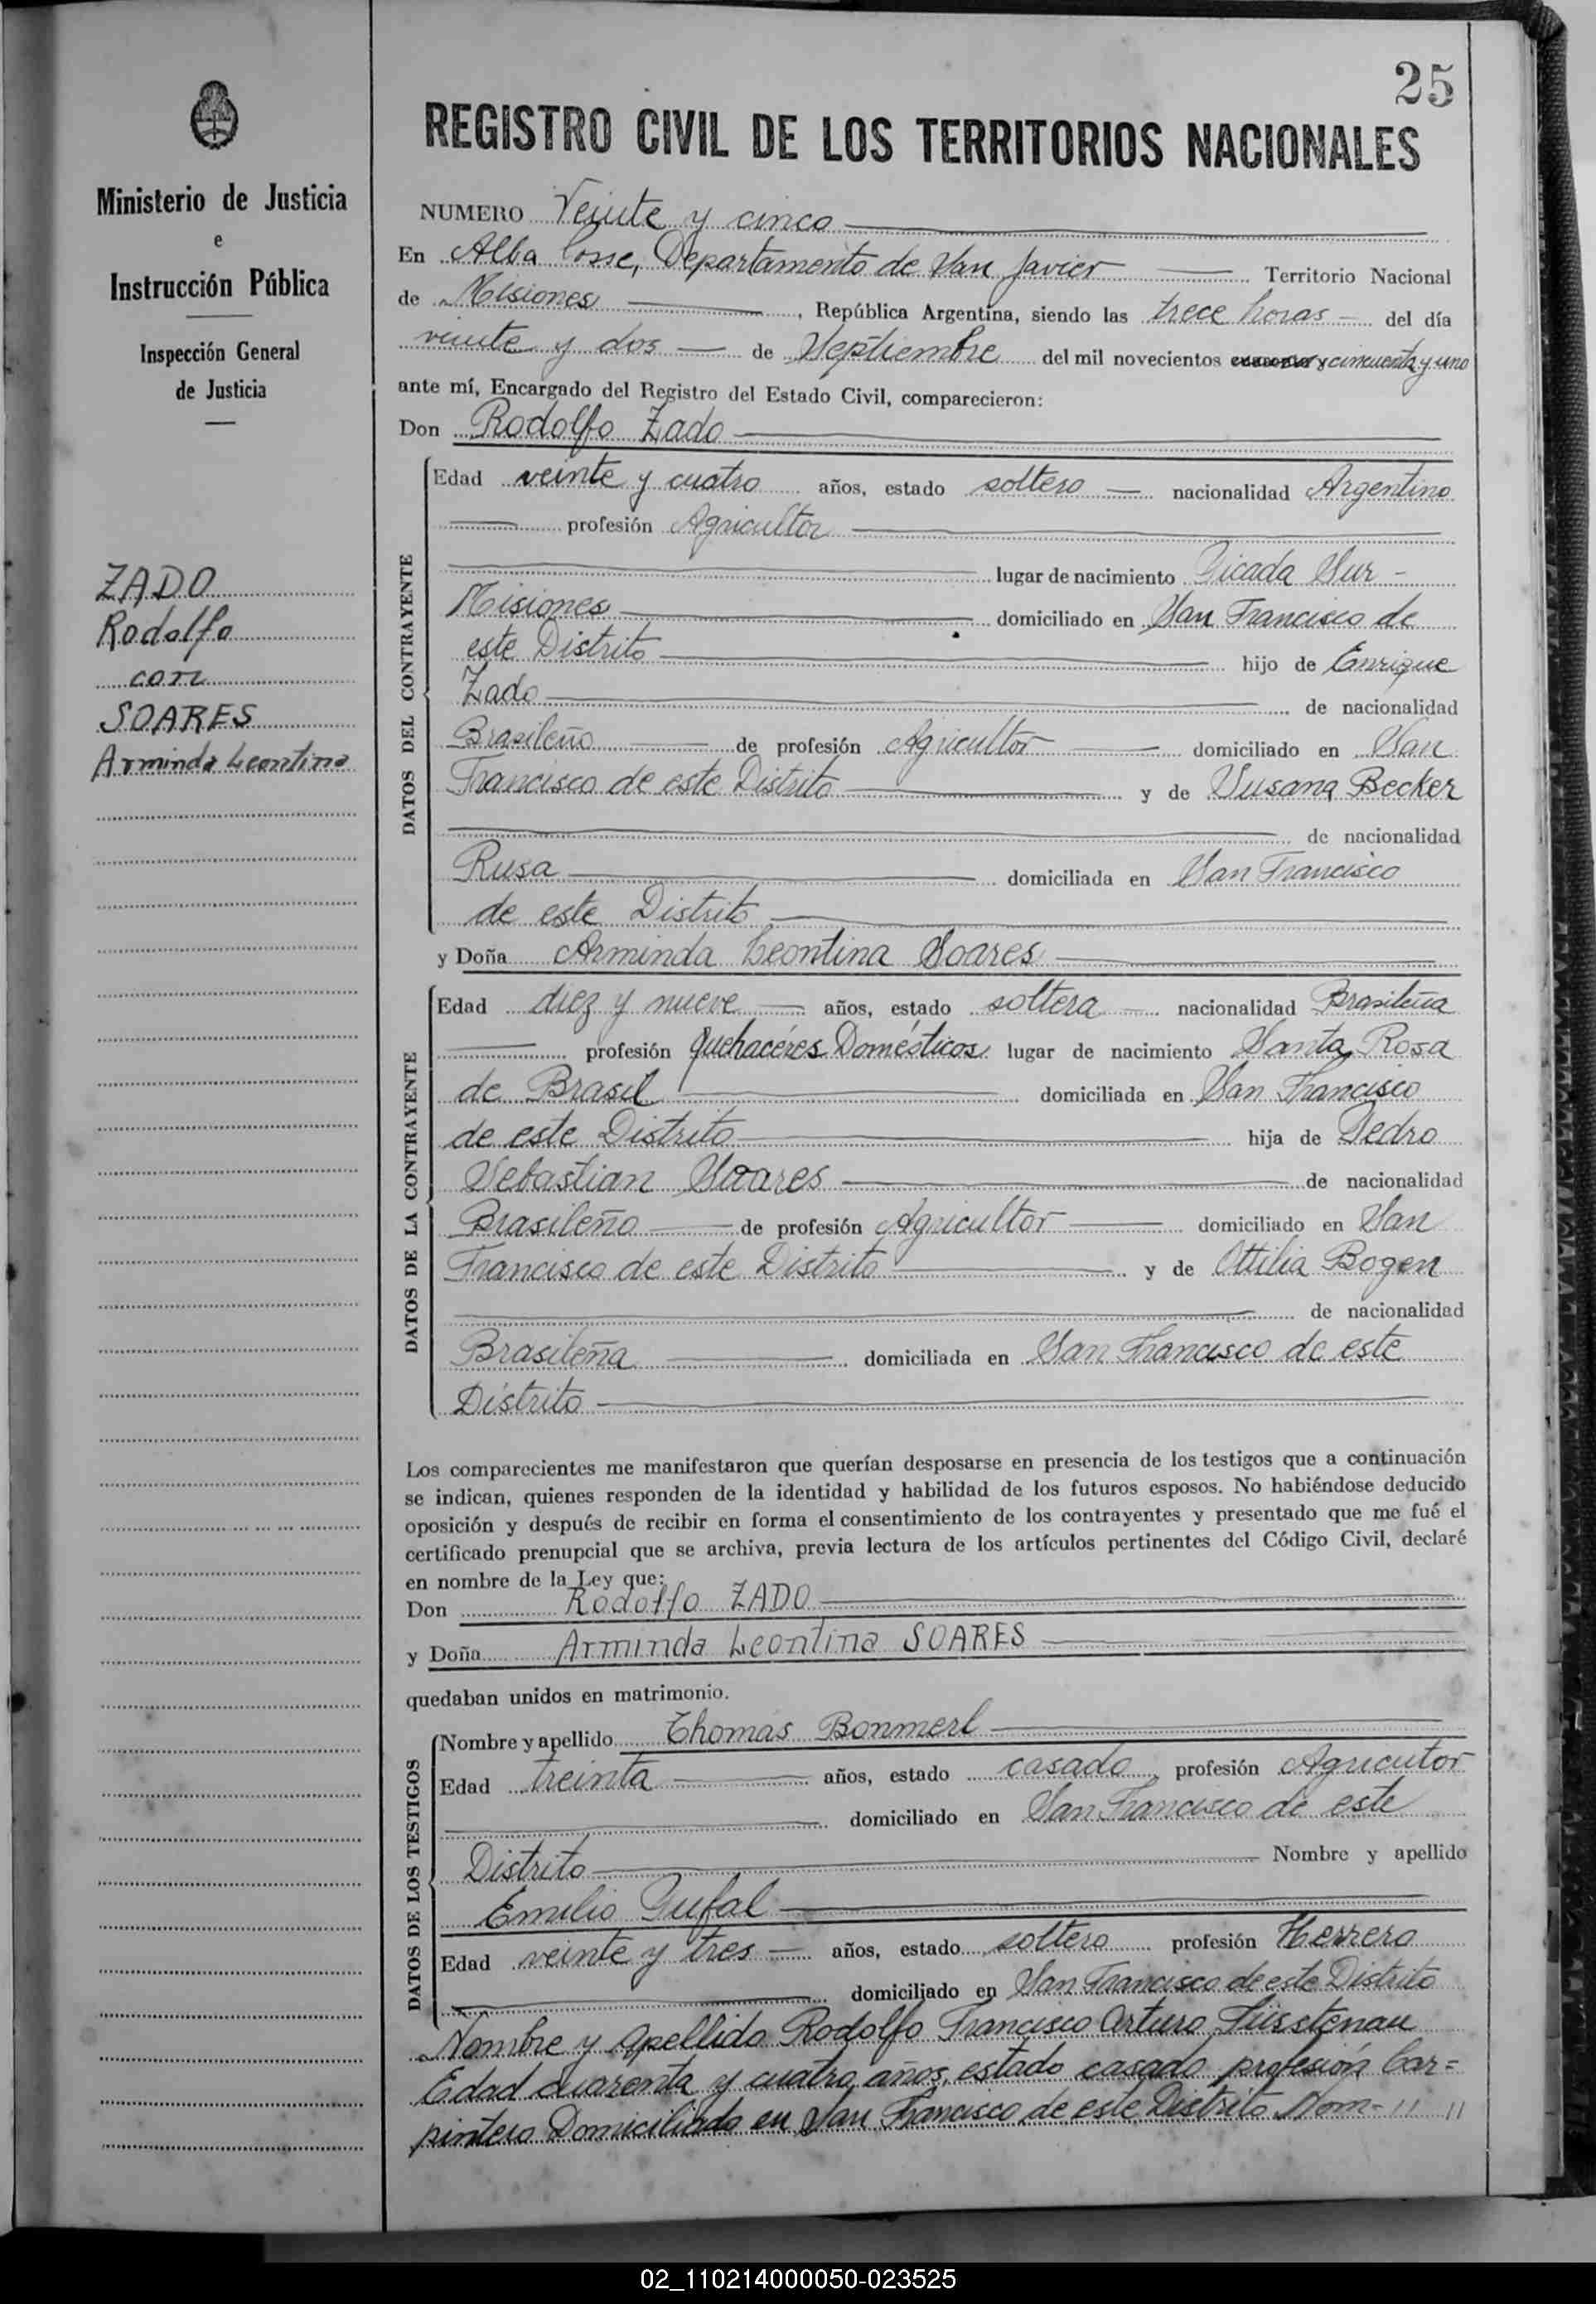 25
Ministerio de Justicia
e
Instrucción Pública
Inspección General
de Justicia
ZADO
Rodolfo
con
SOARES
Arminda Leontina
REGISTRO CIVIL DE LOS TERRITORIOS NACIONALES
NUMERO Veinte y cinco
En Alba Posse, Departamento de San Javier Territorio Nacional
de Misiones, República Argentina, siendo las trece horas del día
veinte y dos de Septiembre del mil novecientos cincuenta y uno
ante mí, Encargado del Registro del Estado Civil, comparecieron:
Don Rodolfo Zado
DATOS DEL CONTRAYENTE
Edad veinte y cuatro años, estado soltero nacionalidad Argentino
profesión Agricultor
lugar de nacimiento Picada Sur -
Misiones domiciliado en San Francisco de
este Distrito hijo de Enrique
Zado de nacionalidad
Brasileño de profesión Agricultor domiciliado en San
Francisco de este Distrito y de Susana Becker
de nacionalidad
Rusa domiciliada en San Francisco
de este Distrito
y Doña Arminda Leontina Soares
DATOS DE LA CONTRAYENTE
Edad diez y nueve años, estado soltera nacionalidad Brasileña
profesión Quehacéres Domésticos lugar de nacimiento Santa Rosa
de Brasil domiciliada en San Francisco
de este Distrito hija de Pedro
Sebastian Soares de nacionalidad
Brasileño de profesión Agricultor domiciliado en San
Francisco de este Distrito y de Ottilia Bogen
de nacionalidad
Brasileña domiciliada en San Francisco de este
Distrito
Los comparecientes me manifestaron que querían desposarse en presencia de los testigos que a continuación
se indican, quienes responden de la identidad y habilidad de los futuros esposos. No habiéndose deducido
oposición y después de recibir en forma el consentimiento de los contrayentes y presentado que me fué el
certificado prenupcial que se archiva, previa lectura de los artículos pertinentes del Código Civil, declaré
en nombre de la Ley que:
Don Rodolfo ZADO
y Doña Arminda Leontina SOARES
quedaban unidos en matrimonio.
DATOS DE LOS TESTIGOS
Nombre y apellido Thomas Bonmerl
Edad treinta años, estado casado, profesión Agricutor
domiciliado en San Francisco de este
Distrito Nombre y apellido
Emilio Pufal
Edad veinte y tres años, estado soltero profesión Herrero
domiciliado en San Francisco de este Distrito
Nombre y apellido Rodolfo Francisco Arturo
Edad cuarenta y cuatro años, estado casado profesión Car=
pintero Domiciliado en San Francisco de este Distrito Nom= " "
02_110214000050-023525